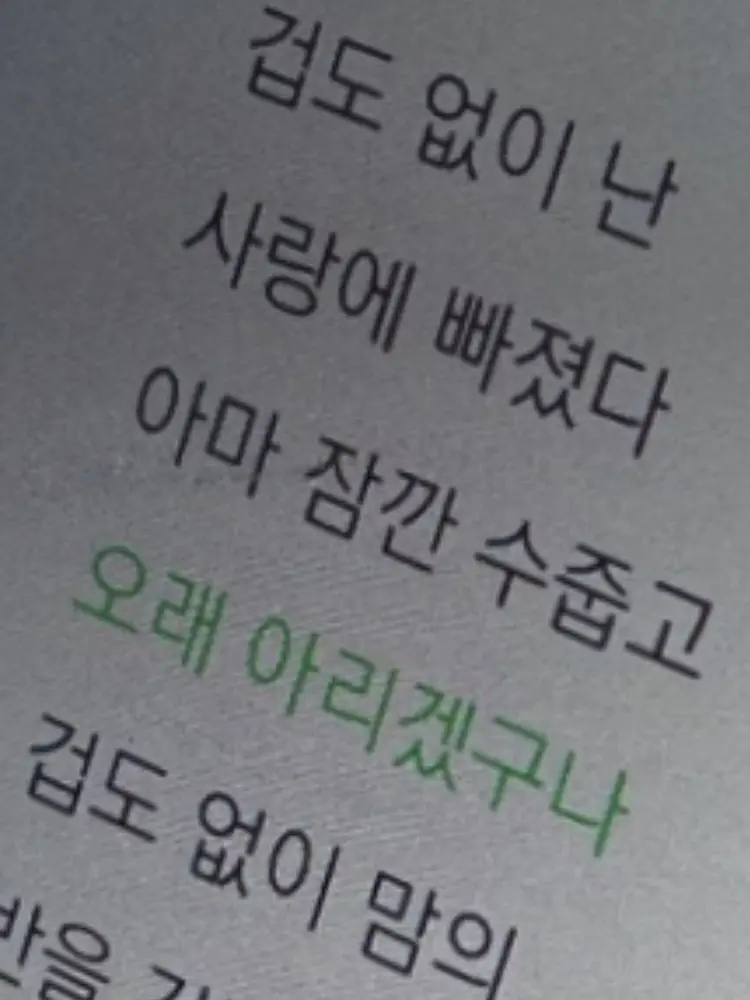 겁도 없이 난
사랑에 빠졌다
아마 잠깐 수줍고
오래 아리겠구나
겁도 없이 맘의